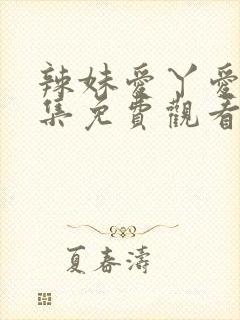 辣妹愛丫愛
集免費觀看
夏春濤